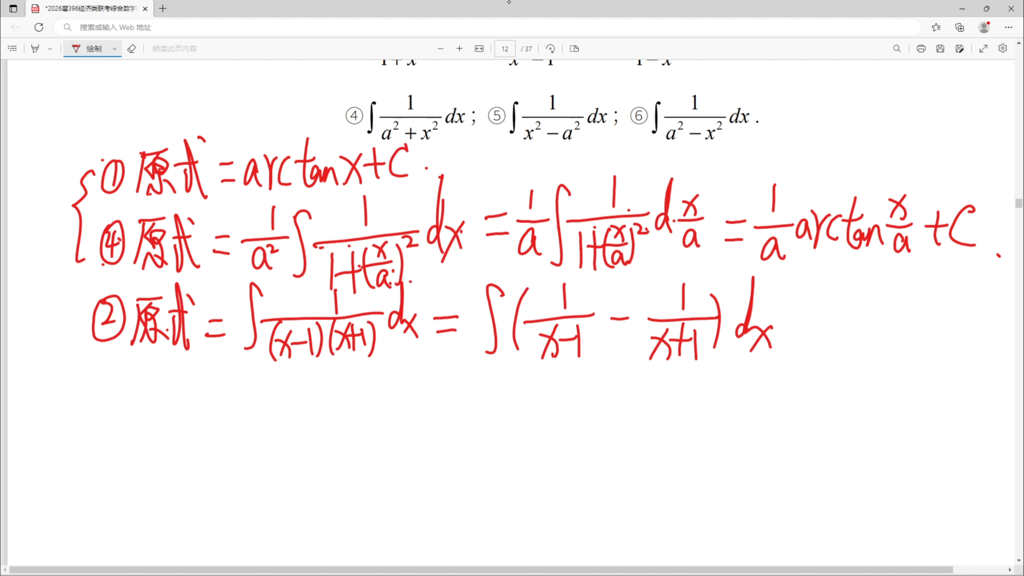 *2026届396经济类联考综合数学
搜索或输入 Web 地址
绘制 朗读此页内容 12 / 37
④ ∫ 1/(a² + x²) dx ; ⑤ ∫ 1/(x² − a²) dx ; ⑥ ∫ 1/(a² − x²) dx .
① 原式 = arctan x + C .
④ 原式 = 1/a² ∫ 1/(1+(x/a)²) dx = 1/a ∫ 1/(1+(x/a)²) d x/a = 1/a arctan x/a + C .
② 原式 = ∫ 1/((x−1)(x+1)) dx = ∫ ( 1/(x−1) − 1/(x+1) ) dx